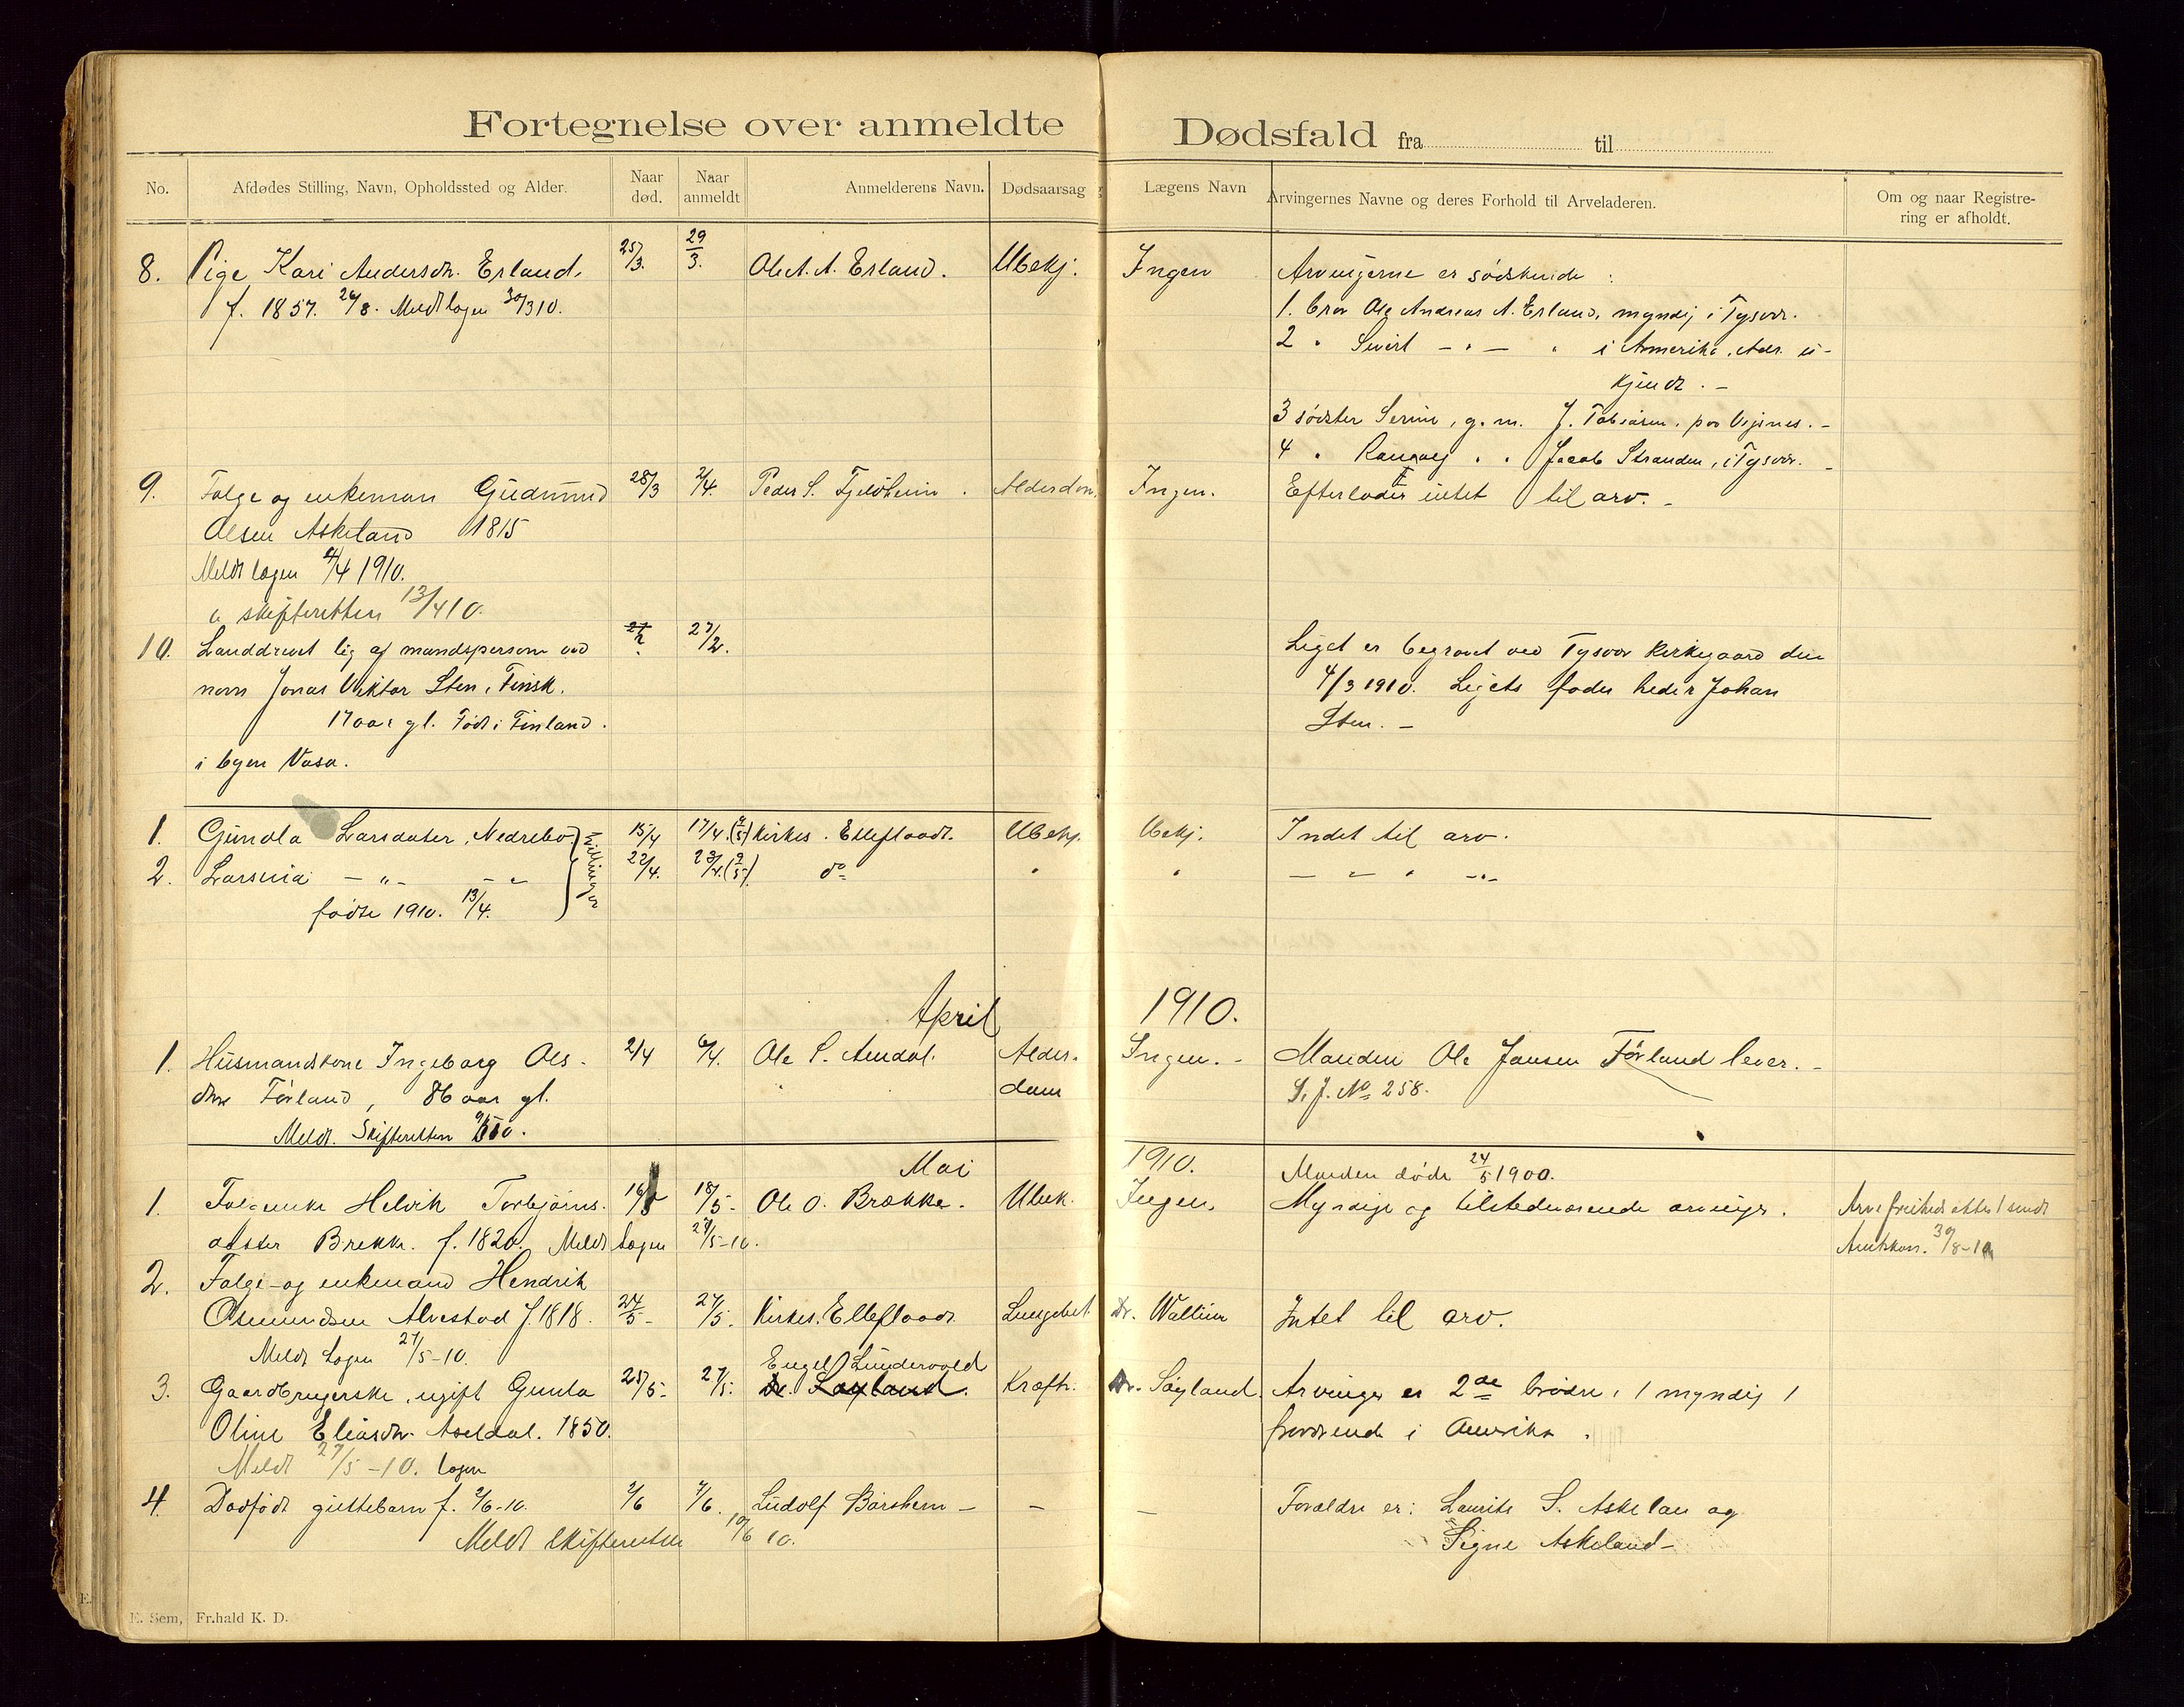 Fortegnelse over anmeldte Dødsfald fra til
No. Afdødes Stilling, Navn, Opholdssted og Alder. Naar død. Naar anmeldt Anmelderens Navn. Dødsaarsag Lægens Navn Arvingernes Navne og deres Forhold til Arveladeren. Om og naar Registrering er afholdt.
8. Pige Kari Andersdr. Erland. 25/3. 29/3. Ole A. A. Erland. Ubekj. Ingen Arvingerne er södskende:
f. 1857. 26/8. Meldt logen 30/3 10. 1. bror Ole Andreas A. Erland, myndig i Tysvær.
2 " Sivert - " - " i Amerika. Adr. u-
kjendt. -
3 södster Serine, g. m. J. Tobiasen. paa Vigsnes. -
4 " Rangvej " " Jacob Stranden, i Tysvær. -
9. Folge og enkeman Gudmund 28/3 2/4. Peder S. Fjeldheim. Alderdom. Ingen. Efterlader intet til arv. -
Olsen Askeland 1815
Meldt logen 4/4 1910.
a skifteretten 13/4 10.
10. Landdrevet lig af mandsperson ved 27/2. 27/2. Liget er begravet ved Tysvær kirkegaard den
navn Jonas Viktor Sten, Finsk. 4/3 1910. Ligets fader heder Johan
17 aar gl. Födt i Finland. Sten. -
i byen Vasa.
1. Gunda Larsdater, Nedrebø. 15/4 17/4. (2/5) Kirkes. Elleflaadt. Ubekj. Ubekj. Indet til arv.
2. Larsine - " - - " Tvillinger 22/4. 23/4. (2/5) do " " - " -
födte 1910. 13/4.
April 1910.
1. Husmandskone Ingeborg Ols- 2/4 6/4. Ole S. Amdal. Alder- Ingen. - Manden Ole Jansen Förland lever. -
dtr Förland, 86 aar gl. dom S. J. No 258.
Meldt. Skifteretten 9/5 10.
Mai 1910. Manden döde 24/5 1900.
1. Folgenke Helvik Torbjörns- 16/5 18/5- Ole O. Brække. Ubek. Ingen. Myndige og tilstedeværende arvinger. Arvefrihedsattest sendt
datter Brekke. f. 1820. Meldt logen 27/5-10. Amtskon. 30/8-10
2. Folge- og enkemand Hendrik
Osmundsen Alvestad f. 1818. 24/5- 27/5. Kirkes. Elleflaadt Lungebet. Dr. Wallum Intet til arv.
Meldt Logen 27/5-10.
Engel Lundervold
3. Gaardbrugerske, ugift Gunla 25/5- 27/5. Dr. Søyland. Kræft. Dr. Søyland Arvinger er 2de brödre, 1 myndig 1
Oline Eliasdr. Aseldal. 1850. fraværende i Amerika.
Meldt 27/5-10. logen
4. Dødfödt guttebarn f. 2/6-10. 2/6 7/6. Ludolf Børshem - - - Forældre er: Laurits S. Askelan og
Meldt Skifteretten 10/6 10. Signe Askeland -
E. Sem, Fr.hald K. D.